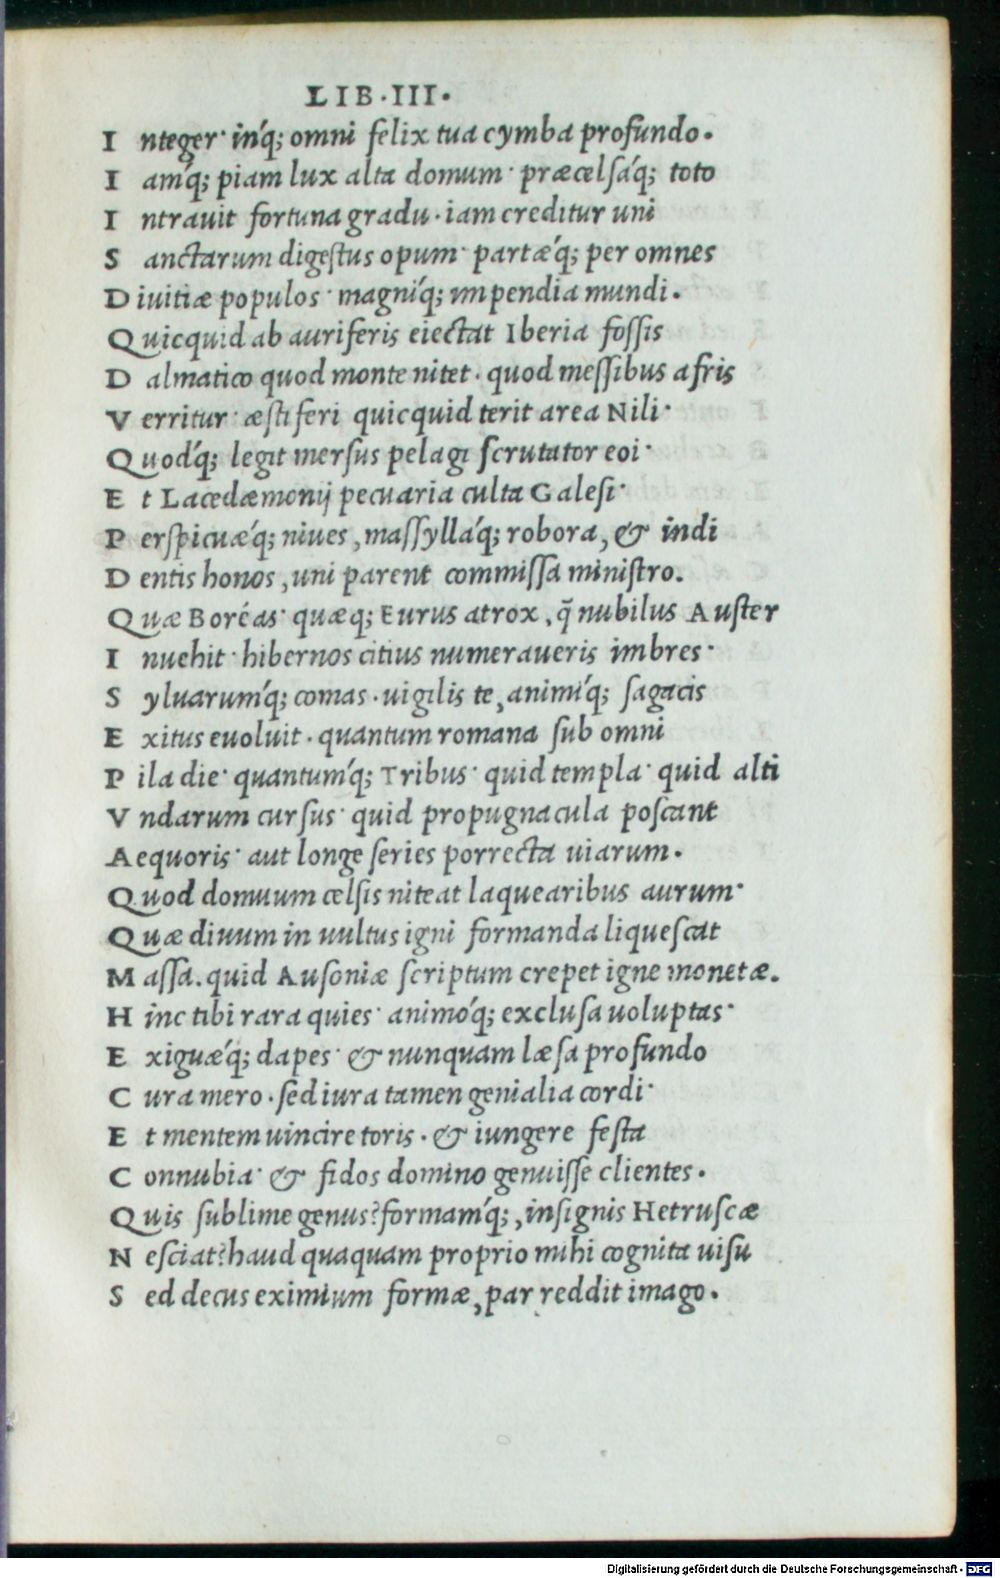 LIB·III·
I nteger· inq́; omni felix tua cymba profundo.
I amq́; piam lux alta domum· præcelsáq; toto
I ntravit fortuna gradu· iam creditur uni
S anctarum digestus opum· partǽq; per omnes
D iuitiæ populos· magníq; impendia mundi.
Q uicquid ab auriferis eiectat Iberia fossis
D almatico quod monte nitet· quod messibus afris
V erritur· æstiferi quicquid terit area Nili·
Q uodq́; legit mersus pelagi scrutator eoi·
E t Lacedæmonij pecuaria culta Galesi·
P erspicuǽq; niues, massylláq; robora, & indi
D entis honos, uni parent commissa ministro.
Q uæ Boréas· quæq; Eurus atrox, q̃ nubilus Auster
I nuehit· hibernos citius numeraueris imbres·
S yluarumq́; comas· uigilis te, animíq; sagacis
E xitus euoluit· quantum romana sub omni
P ila die· quantumq́; Tribus· quid templa· quid alti
V ndarum cursus· quid propugnacula poscant
A equoris· aut longe series porrecta uiarum.
Q uod domuum celsis niteat laquearibus aurum·
Q uæ diuum in uultus igni formanda liquescat
M assa. quid Ausoniæ scriptum crepet igne monetæ.
H inc tibi rara quies· animóq; exclusa uoluptas·
E xiguǽq; dapes· & nunquam læsa profundo
C ura mero· sed iura tamen genialia cordi·
E t mentem uincire toris· & iungere festa
C onnubia· & fidos domino genuisse clientes.
Q uis sublime genus? formamq́;, insignis Hetruscæ
N esciat? haud quaquam proprio mihi cognita uisu
S ed decus eximium formæ, par reddit imago.
Digitalisierung gefördert durch die Deutsche Forschungsgemeinschaft - DFG